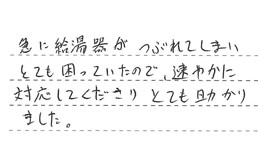 急に給湯器が つぶれてしまい
とても困っていたので、速やかに
対応してくださり とても助かり
ました。